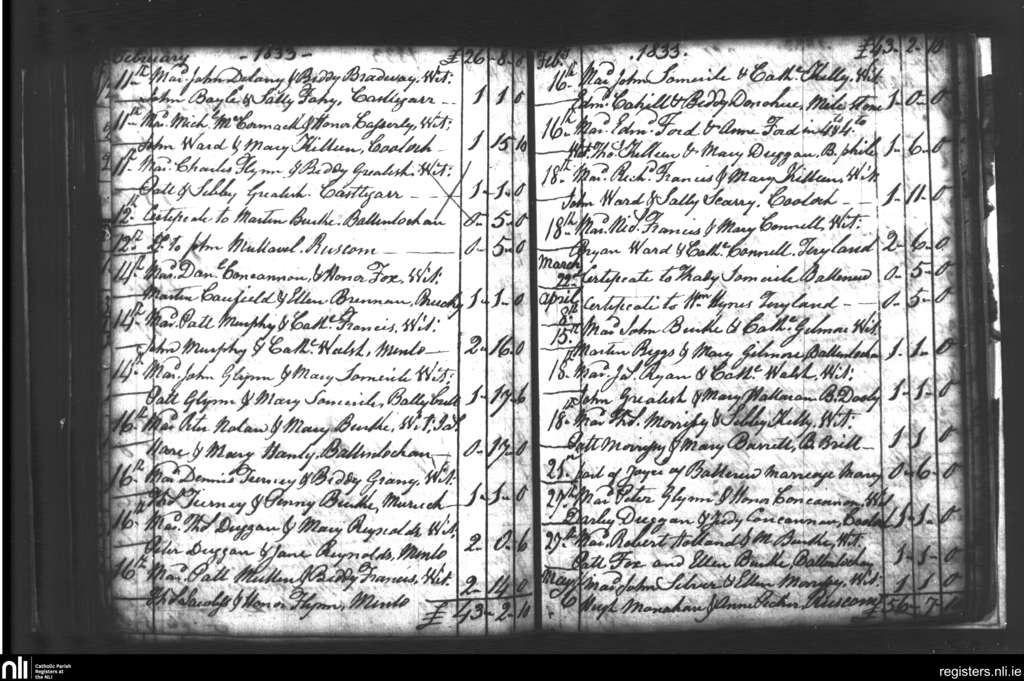 February - 1833 - £26-8-0
11th Mard. John Delany & Biddy Bradway, Wit:
John Boyle & Sally Fahy, Castlegarr - 1 1 0
11th Mard. Michl. McCormack & Honor Casserly, Wit:
John Ward & Mary Killeen, Cooloch - 1 15 10
11th Mard. Charles Flynn & Biddy Grealish Wit:
Patt & Sibby Grealish Castlegarr - 1-1-0
12th Certificate to Martin Burke Ballinlochan 0-5-0
12th Do. to John Mullavel. Ruscom - 0-5-0
14th Mard. Danl. Concannon, & Honor Fox, Wit:
Martin Caulfield & Ellen Brennan, 1-1-0
14th Mard. Patt Murphy & Cathe. Francis, Wit:
John Murphy & Cathe. Walsh, Menlo - 2-16-0
14th Mard. John Glynn & Mary Somerile Wit:
Patt Glynn & Mary Somerile, 1-17-6
16th Mard. Peter Nolan & Mary Burke, Wit:
Hare & Mary Hanly, Ballinlochan - 0-17-0
16th Mard. Dennis Tierney & Biddy Grany, Wit:
Thos. Tierney & Penny Burke, Muroch - 1-1-0
16th Mard. Thos. Duggan & Mary Reynolds, Wit:
Peter Duggan & Jane Reynolds, Menlo 2-0-6
16th Mard. Patt Mullen & Biddy Francis, Wit: 2-14-0
& Honor Flynn, Menlo £43-2-10
Feby. 1833. £43-2-10
16th Mard. John Somerile & Cathe. Kelly, Wit:
Edmd. Cahill & Biddy Donohue, Mile Stone 1-0-0
16th Mard. Edmd. Ford & Anne Ford in 4th & 4th to
Wit. Thos. Killeen & Mary Duggan, B.phile 1-6-0
18th Mard. Richd. Francis & Mary Killeen, Wit:
John Ward & Sally Scarry, Cooloch - 1-11-0
18th Mard. Nics. Francis & Mary Connell, Wit:
Bryan Ward & Cathe. Connell. Teryland 2-6-0
March
22nd Certificate to Thady Somerile Ballinew 0-5-0
April
8th Certificate to Wm. Hynes Teryland - 0-5-0
15th Mard. John Burke & Cathe. Gilmore Wit:
Martin Biggs & Mary Gilmore, Ballinlochan 1-1-0
18th Mard. Jas. Ryan & Cathe. Walsh, Wit:
John Grealish & Mary Hallaran B.Dooly 1-1-0
18th Mard. Thos. Morrissy & Sibby Kelly, Wit:
Patt Morrissy & Mary Barrett, B.Britt - 1 1 0
25th part of Joyce of Ballinew marriage money 0-6-0
27th Mard. Peter Glynn & Honor Concannon, Wit:
Darley Duggan & Judy Concannon, Cooloch 1-1-0
27th Mard. Robert Holland & M. Burke, Wit:
Patt Fox and Ellen Burke, Ballinlochan 1-1-0
May
6th Mard. John Silver & Ellen Morrissy, Wit: 1 1 0
Hugh Monahan & Anne Ruscom £56-7-10
nli
Catholic Parish
Registers at
the NLI
registers.nli.ie